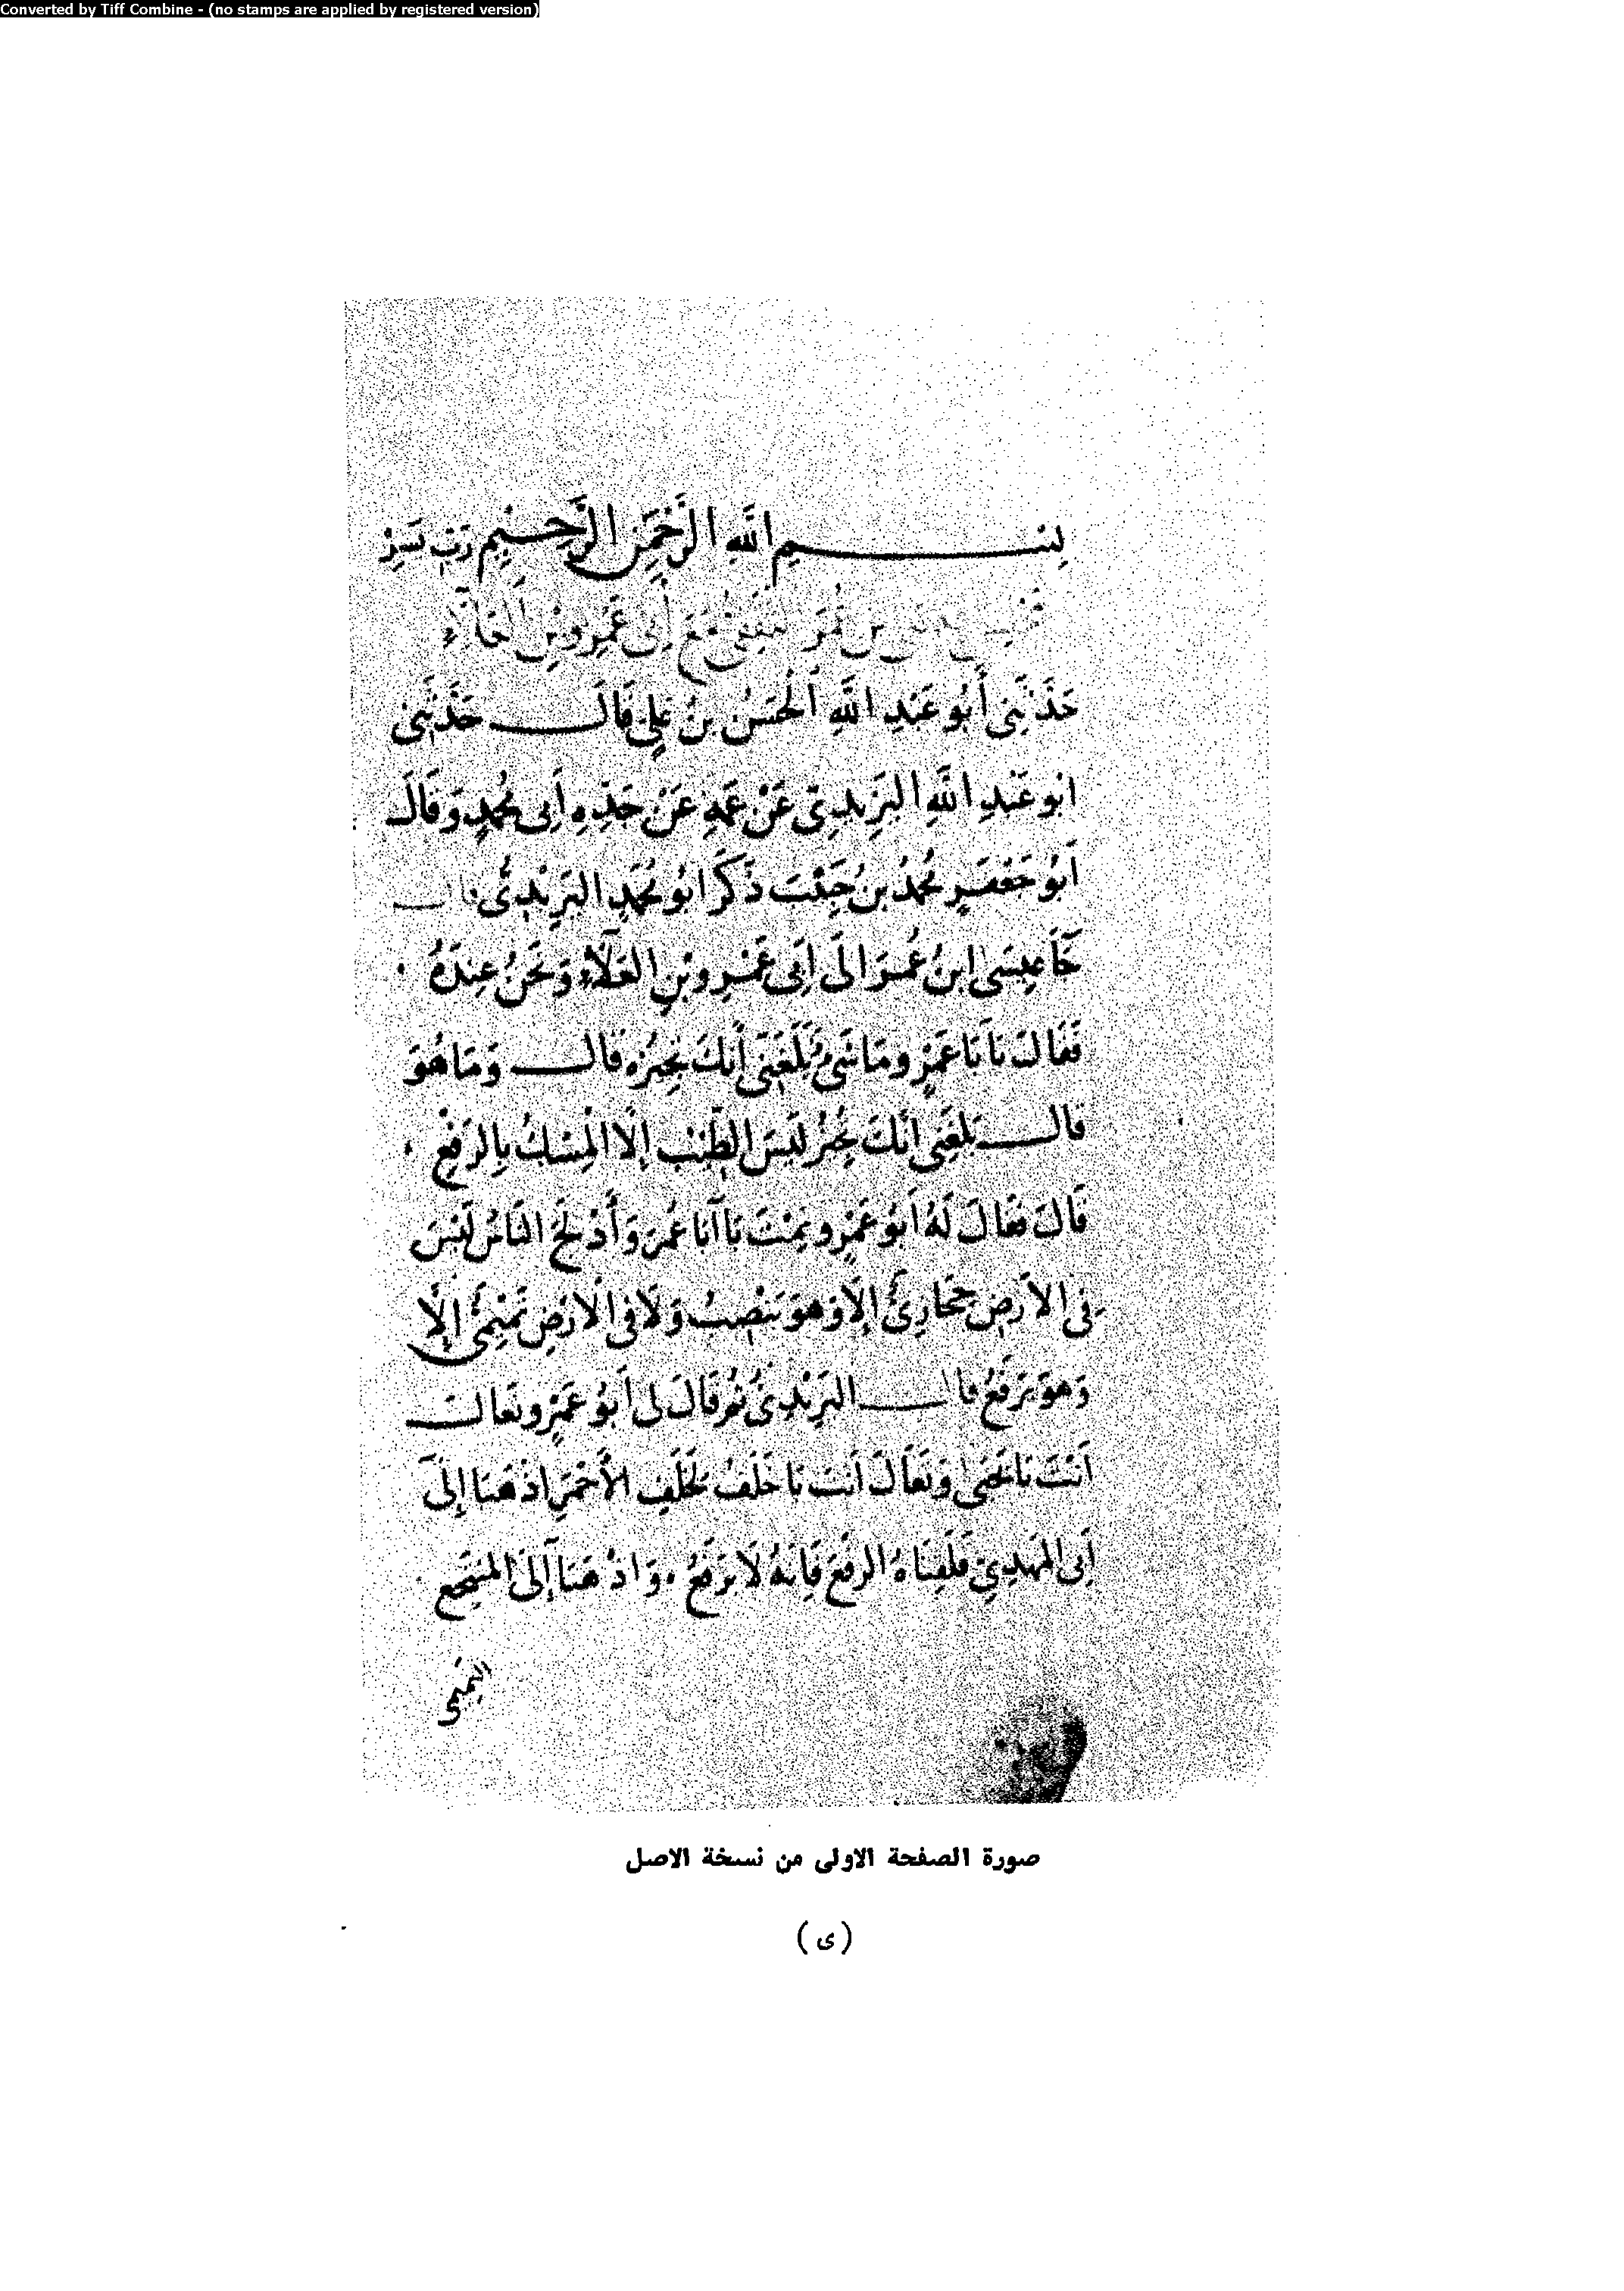 Converted by Tiff Combine - (no stamps are applied by registered version)
بِسْمِ اللَّهِ الرَّحْمَنِ الرَّحِيمِ رَبِّ يَسِّرْ
بن عُمَر مَعَ أَبِي عَمْرِو بْنِ الْعَلَاءِ
حَدَّثَنِي أَبُو عَبْدِ اللَّهِ الْحَسَنُ بْنُ عَلِيٍّ قَالَ حَدَّثَنِي
ابُو عَبْدِ اللَّهِ الْيَزِيدِيّ عَنْ عَمِّهِ عَنْ جَدِّهِ أَبِي مُحَمَّدٍ وَقَالَ
أَبُو جَعْفَرٍ مُحَمَّدُ بنُ حَبِيْبَ ذَكَرَ ابُو مُحَمَّدٍ الْيَزِيْدِيُّ قال
جَآءَ عِيسَى ابنُ عُمَرَ الَى أَبِي عَمْرِو بْنِ الْعَلَآءِ وَنَحْنُ عِنْدَهُ
فَقَالَ يَا بَا عَمْرٍو مَا شَيْءٌ بَلَغَنِي أَنَّكَ تُجِيزُهُ قال وَمَا هُوَ
قال بَلَغَنِي انَّكَ تُجِيزُ لَيْسَ الطِّيْبُ إِلَّا الْمِسْكُ بِالرَّفْعِ
قَالَ فَقَالَ لَهُ أَبُو عَمْرٍو نِمْتَ يَا أَبَا عُمَرَ وَأَدْلَجَ النَّاسُ لَيْسَ
فِي الْأَرْضِ حِجَازِيٌّ إِلَّا وَهُوَ يَنْصِبُ وَلَا فِي الْأَرْضِ تَمِيْمِيٌّ إِلَّا
وَهُوَ يَرْفَعُ قال الْيَزِيْدِيُّ ثُمَّ قَالَ لِي أَبُو عَمْرٍو تَعَالَ
أَنْتَ يَا يَحْيَى وَتَعَالَ أَنْتَ يَا خَلَفُ لِخَلَفٍ الأَحْمَرِ اذْهَبَا إِلَى
أَبِي الْمَهْدِيّ فَلَقِّنَاهُ الرَّفْعَ فَإِنَّهُ لَا يَرْفَعُ وَاذْهَبَا إِلَى الْمُنْتَجِعِ
التميمي
صورة الصفحة الاولى من نسخة الاصل
(ى)